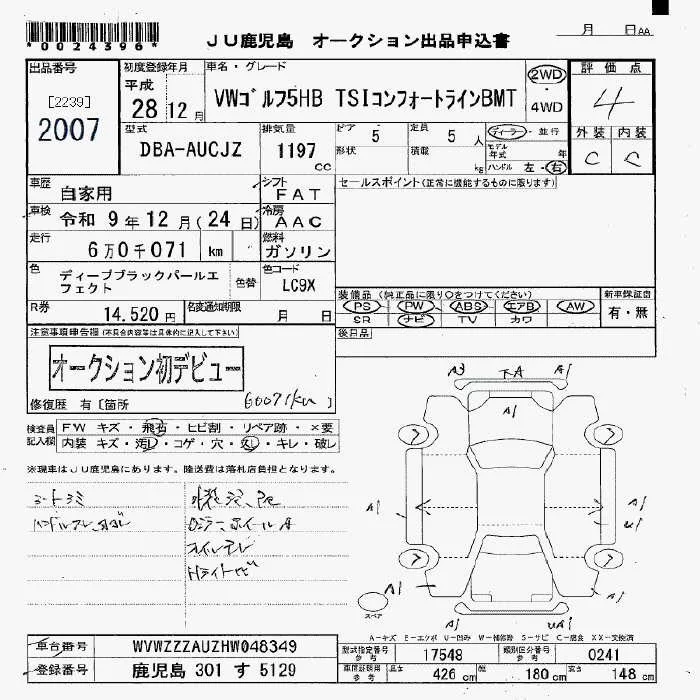 *0024396*
JU鹿児島 オークション出品申込書
月 日AA
出品番号
[2239]
2007
初度登録年月
平成
28 12月
車名・グレード
VWゴルフ5HB TSIコンフォートラインBMT
2WD
・
4WD
評価点
4
外装 内装
C C
型式
DBA-AUCJZ
排気量
1197
cc
ドア 5
形状
定員 5 人
積載 kg
ディーラー・並行
モデル年式 年
ハンドル 左・右
車歴
自家用
シフト
FAT
セールスポイント(正常に機能するものに限ります)
車検
令和 9年 12月(24日)
冷房
AAC
走行
6万0千071 km
燃料
ガソリン
色
ディープブラックパールエフェクト
色替
色コード
LC9X
装備品(純正品に限り○をつけてください)
PS ・ PW ・ ABS ・ エアB ・ AW
SR ナビ TV カワ
新車保証書
有・無
R券
14,520円
名変通知期限
月 日
後日品
注意事項申告欄(不具合内容等は具体的に記入して下さい)
オークション初デビュー
修復歴 有〔箇所 60071km 〕
検査員記入欄
FW キズ・飛石・ヒビ割・リペア跡・×要
内装 キズ・汚レ・コゲ・穴・欠し・キレ・破レ
※現車はJU鹿児島にあります。陸送費は落札店負担となります。
A3 下A A1
A1
A1 A1
A1 A1
A1 UA1
スペア
A-キズ E-エクボ U-凹み W-補修跡 S-サビ C-腐食 XX-交換済
車台番号 WVWZZZAUZHW048349
登録番号 鹿児島 301 す 5129
型式指定番号 参考 17548
類別区分番号 参考 0241
車両諸元用 参考 長さ 426cm 幅 180cm 高さ 148cm